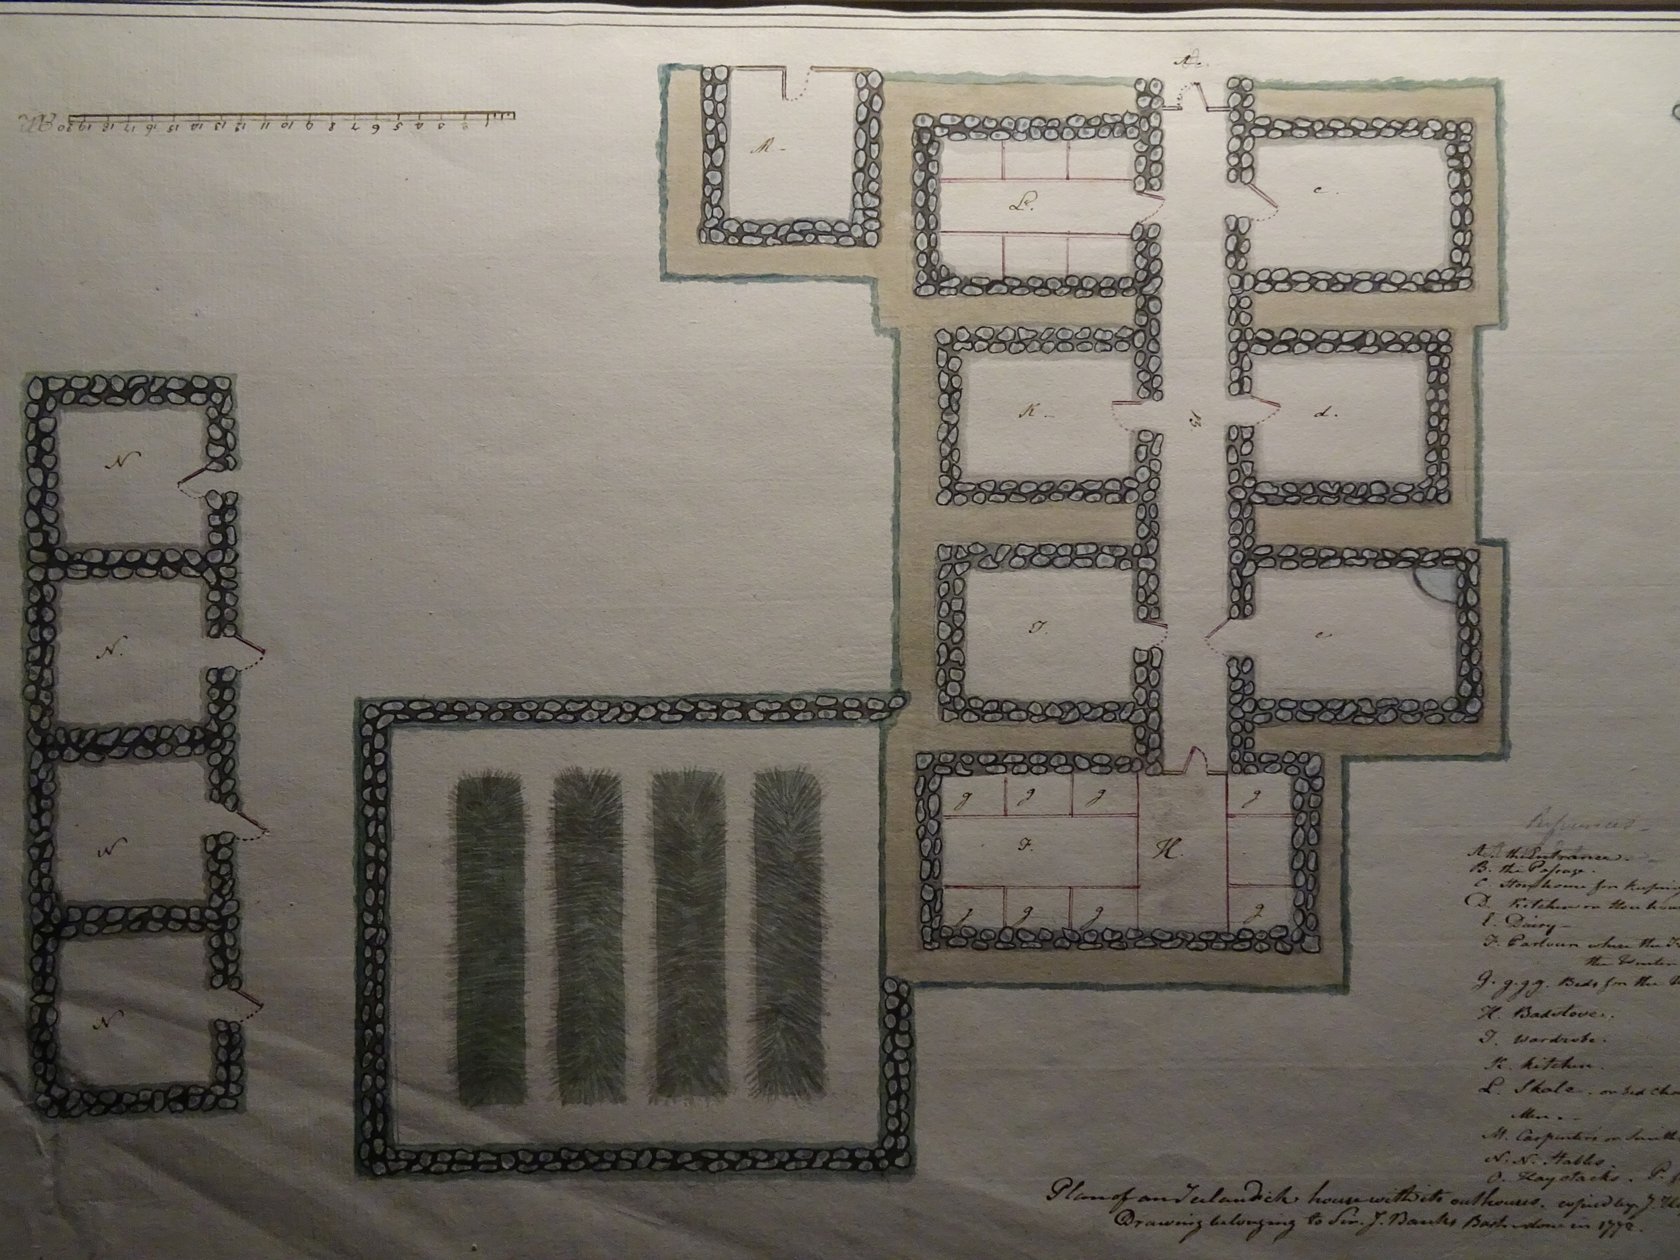 20 19 18 17 16 15 14 13 12 11 10 9 8 7 6 5 4 3 2 1
A.
M.
L.
c.
K.
B
d.
N
N.
N
N
I.
e.
g g g g
F. H.
g g g g
References
A. the Entrance.
B. the Passage.
C Storehouse for keeping
D. Kitchen or
E. Dairy
F. Parlour where the
the Winter
g. g. g. g. Beds for the
H. Badstove.
I. Wardrobe.
K. Kitchen.
L. Skale. or Bed
Men.
M. Carpenters or Smith
N. N. Stables
O. Haystacks. P.
Plan of an Icelandick house with its outhouses. copied by J.
Drawing belonging to Sir. J. Banks Bart. done in 1772.